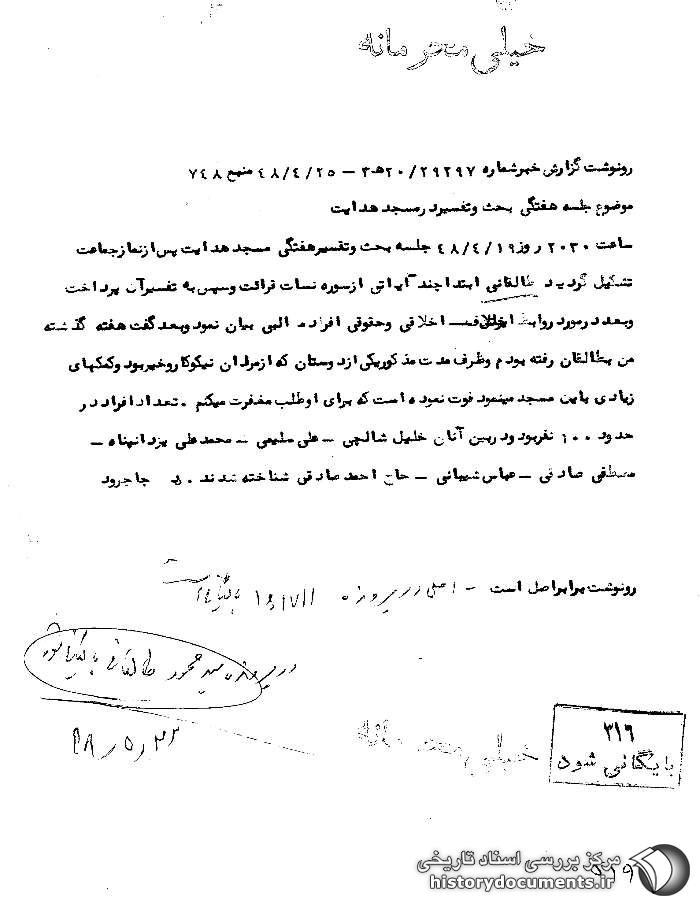 خیلی محرمانه
رونوشت گزارش خبرشماره ۲۹۲۹۷/۲۰ه‍۳ – ۴۸/۴/۲۵ منبع ۷۴۸
موضوع جلسه هفتگی بحث وتفسیردرمسجد هدایت
ساعت ۲۰۳۰ روز ۴۸/۴/۱۹ جلسه بحث وتفسیرهفتگی مسجد هدایت پس ازنمازجماعت
تشکیل گردید طالقانی ابتدا چند آیاتی ازسوره نسات قرائت وسپس به تفسیرآن پرداخت
وبعد درمورد روابط اخلاقی وحقوقی افراد بیان نمود وبعدگفت هفته گذشته
من بطالقان رفته بودم وظرف مدت مذکوریکی ازدوستان که ازمردان نیکوکاروخیربود وکمکهای
زیادی باین مسجد مینمود فوت نموده است که برای اوطلب مغفرت میکنم . تعداد افراد در
حدود ۱۰۰ نفربود ودربین آنان خلیل شالچی – علی – محمدعلی یزدانپناه –
مصطفی صادقی – عباس شیبانی – حاج احمد صادقی شناخته شدند . جاجرود
رونوشت برابراصل است – اصل در پرونده بایگانی است
در پرونده سید محمود طالقانی بایگانی شود
۴۸/۵/۲۳
خیلی محرمانه
۳۱۶
بایگانی شود
۹۱۹
مرکز بررسی اسناد تاریخی
historydocuments.ir